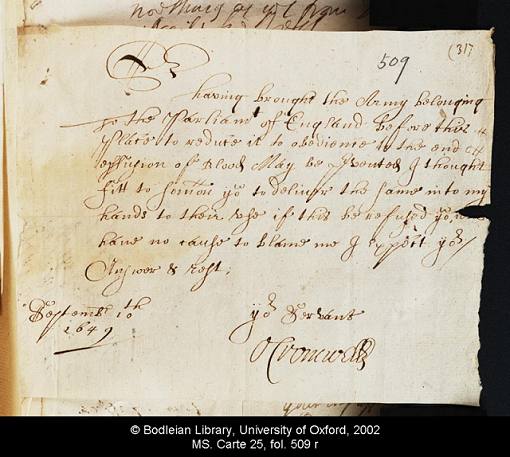 509
(317
Sr
having brought the Army belonging
to the Parliamt of England before this
Place to reduce it to obedience to the end
effusion of blood May be prevented I thought
fitt to summon you to deliver the same into my
hands to their Use if this be refused you will
have no cause to blame me I expect your
Answer & rest;
Septembr 10th
1649
yor Servant
O Cromwell
© Bodleian Library, University of Oxford, 2002
MS. Carte 25, fol. 509 r